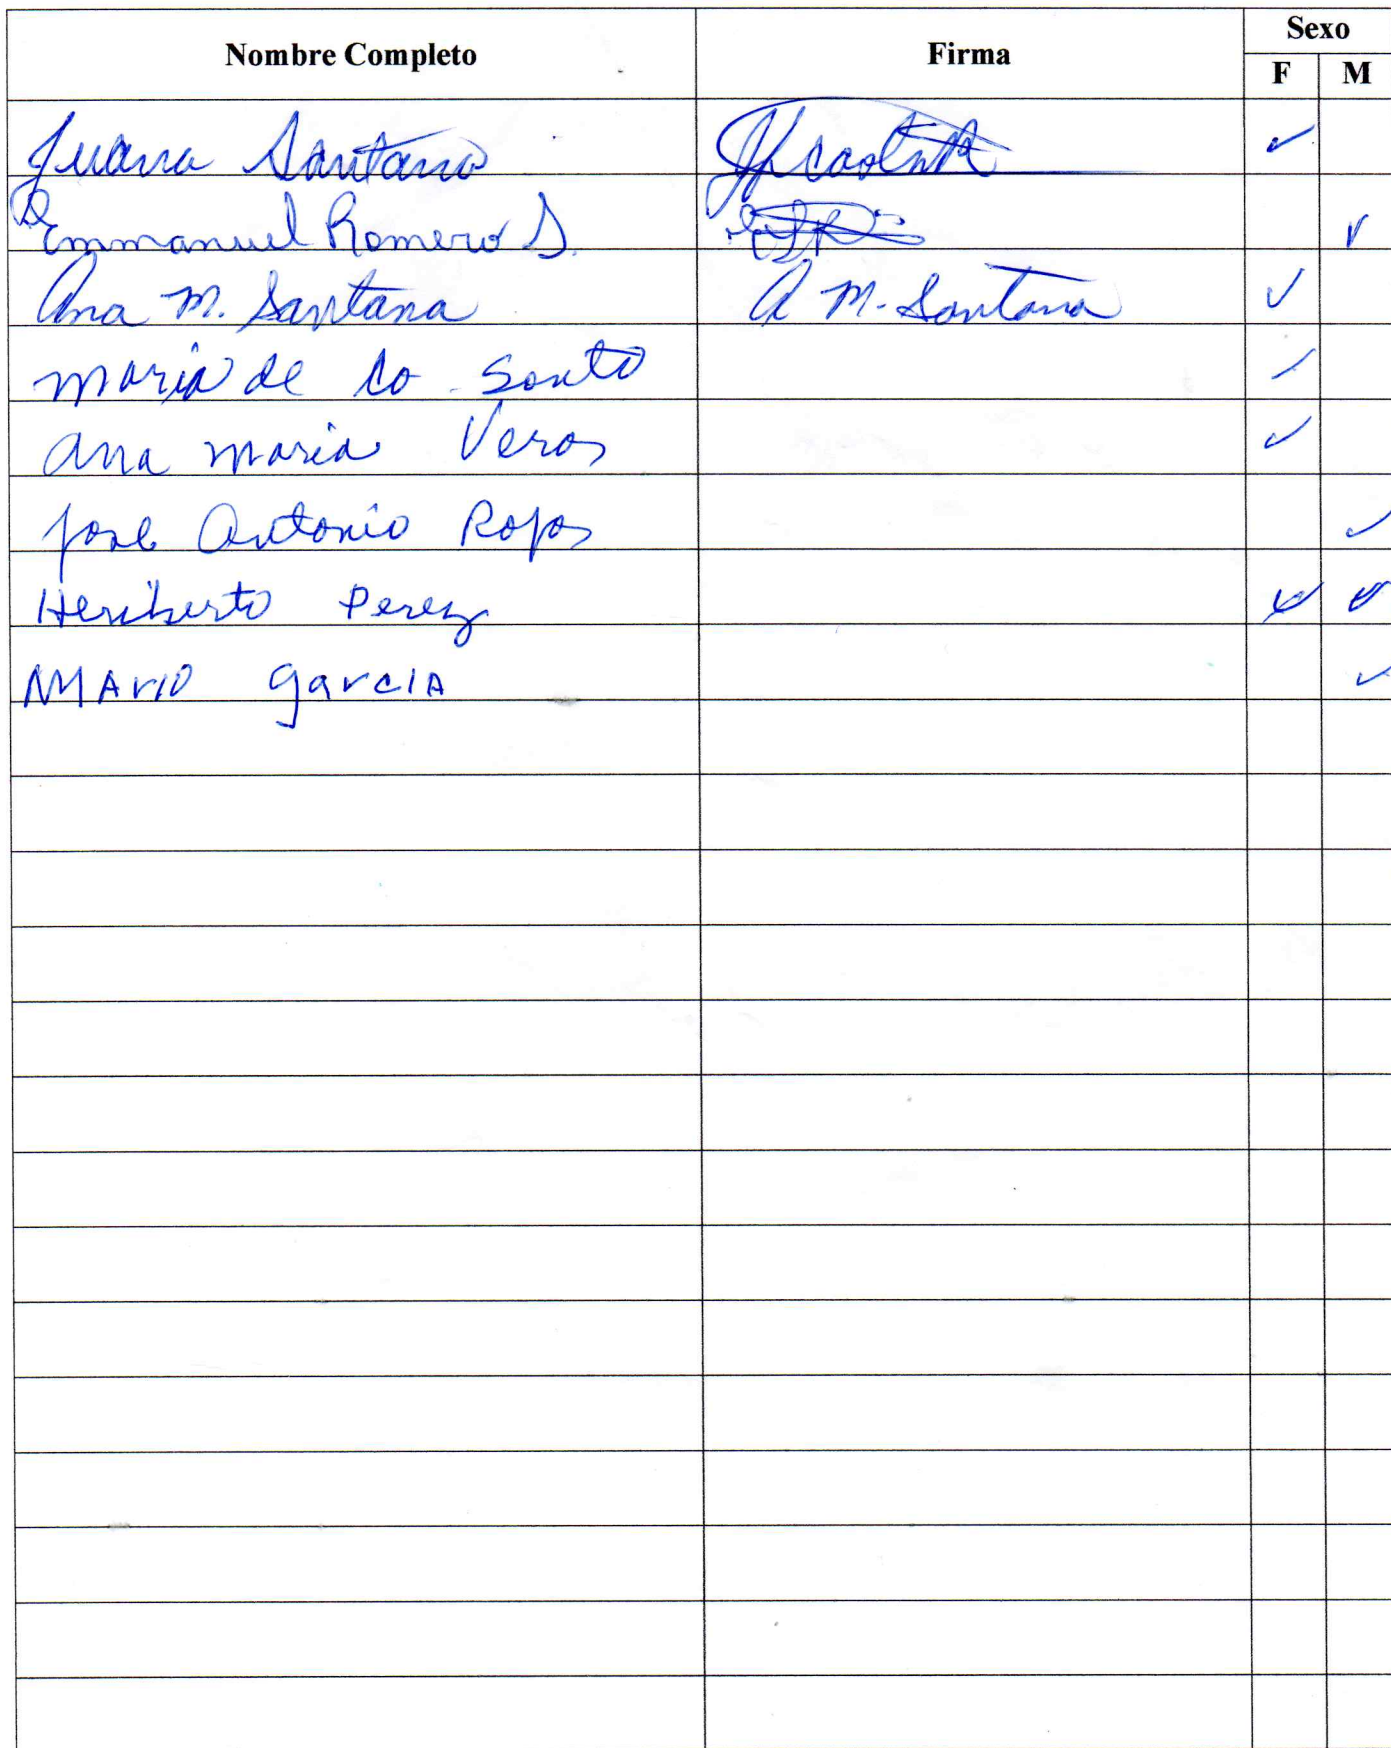 Nombre Completo Firma Sexo
F M
Juana Santana ✓
Emmanuel Romero S. ✓
Ana M. Santana A M. Santana ✓
maria de lo Santo ✓
ana maria Veras ✓
jose Antonio Rojas ✓
Heriberto Perez ✓ ✓
MArio garciA ✓